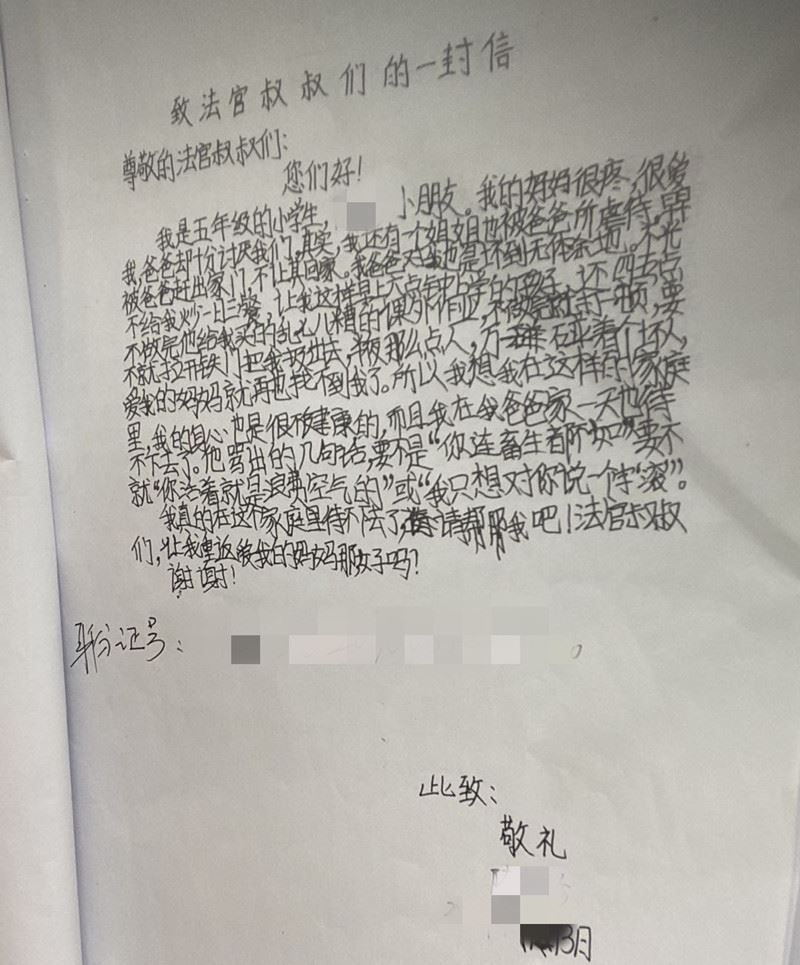 致法官叔叔们的一封信
尊敬的法官叔叔们:
您们好!
我是五年级的小学生, 小朋友。我的妈妈很疼,很爱
我,爸爸却十分讨厌我们,其实,我还有个姐姐也被爸爸所虐待,早
被爸爸赶出家门,不让其回家。我爸爸对我也是坏到无体余地。不光
不给我炒一日三餐,让我这样早上六点钟上学的孩子
不做完他给我买的乱七八糟的课外作业,不做完就
不就拉开铁门把我扔出去,半夜那么点人,万一碰着个坏人,
爱我的妈妈就再也找不到我了。所以,我想我在这样的家庭
里,我的身心也是很不健康的,而且我在我爸爸家一天也待
不下去了。他骂出的几句话,要不是“你连畜生都不如”要不
就“你活着就是浪费空气的”或“我只想对你说一个字‘滚’”。
我真的在这个家庭里待不下去了,请帮帮我吧!法官叔叔
们,让我重返爱我的妈妈那好吗?
谢谢!
身份证号:
此致:
敬礼
3日